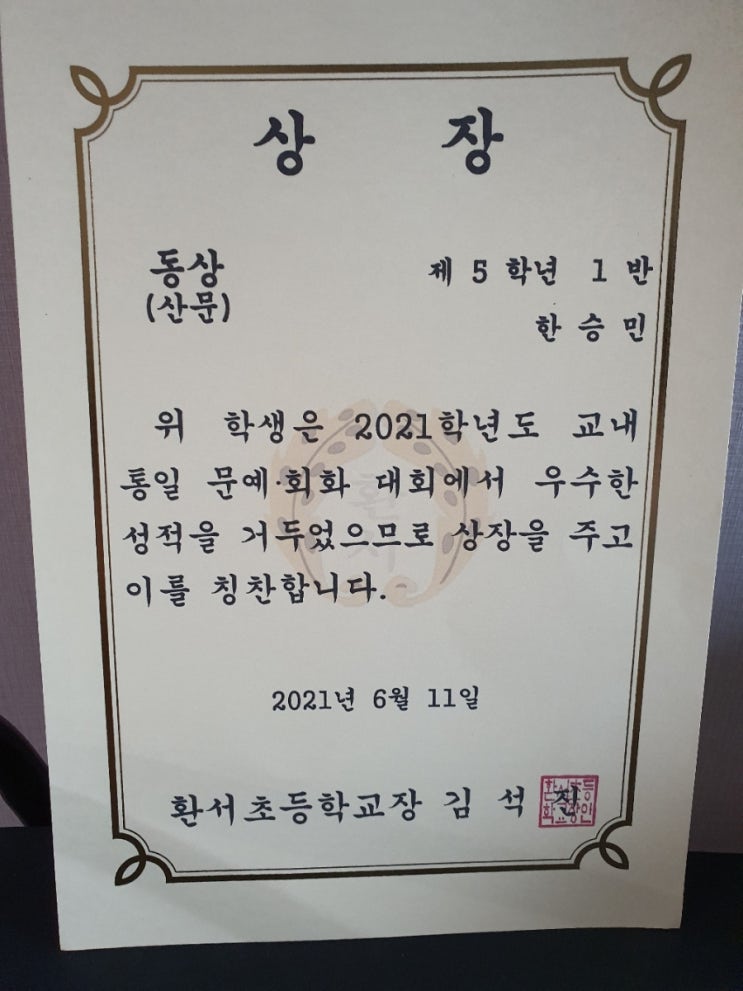 상 장
동상
(산문)
제 5 학년 1 반
한 승 민
위 학생은 2021학년도 교내
통일 문예·회화 대회에서 우수한
성적을 거두었으므로 상장을 주고
이를 칭찬합니다.
2021년 6월 11일
환서초등학교장 김 석 진
환서초등
학교장인
환서